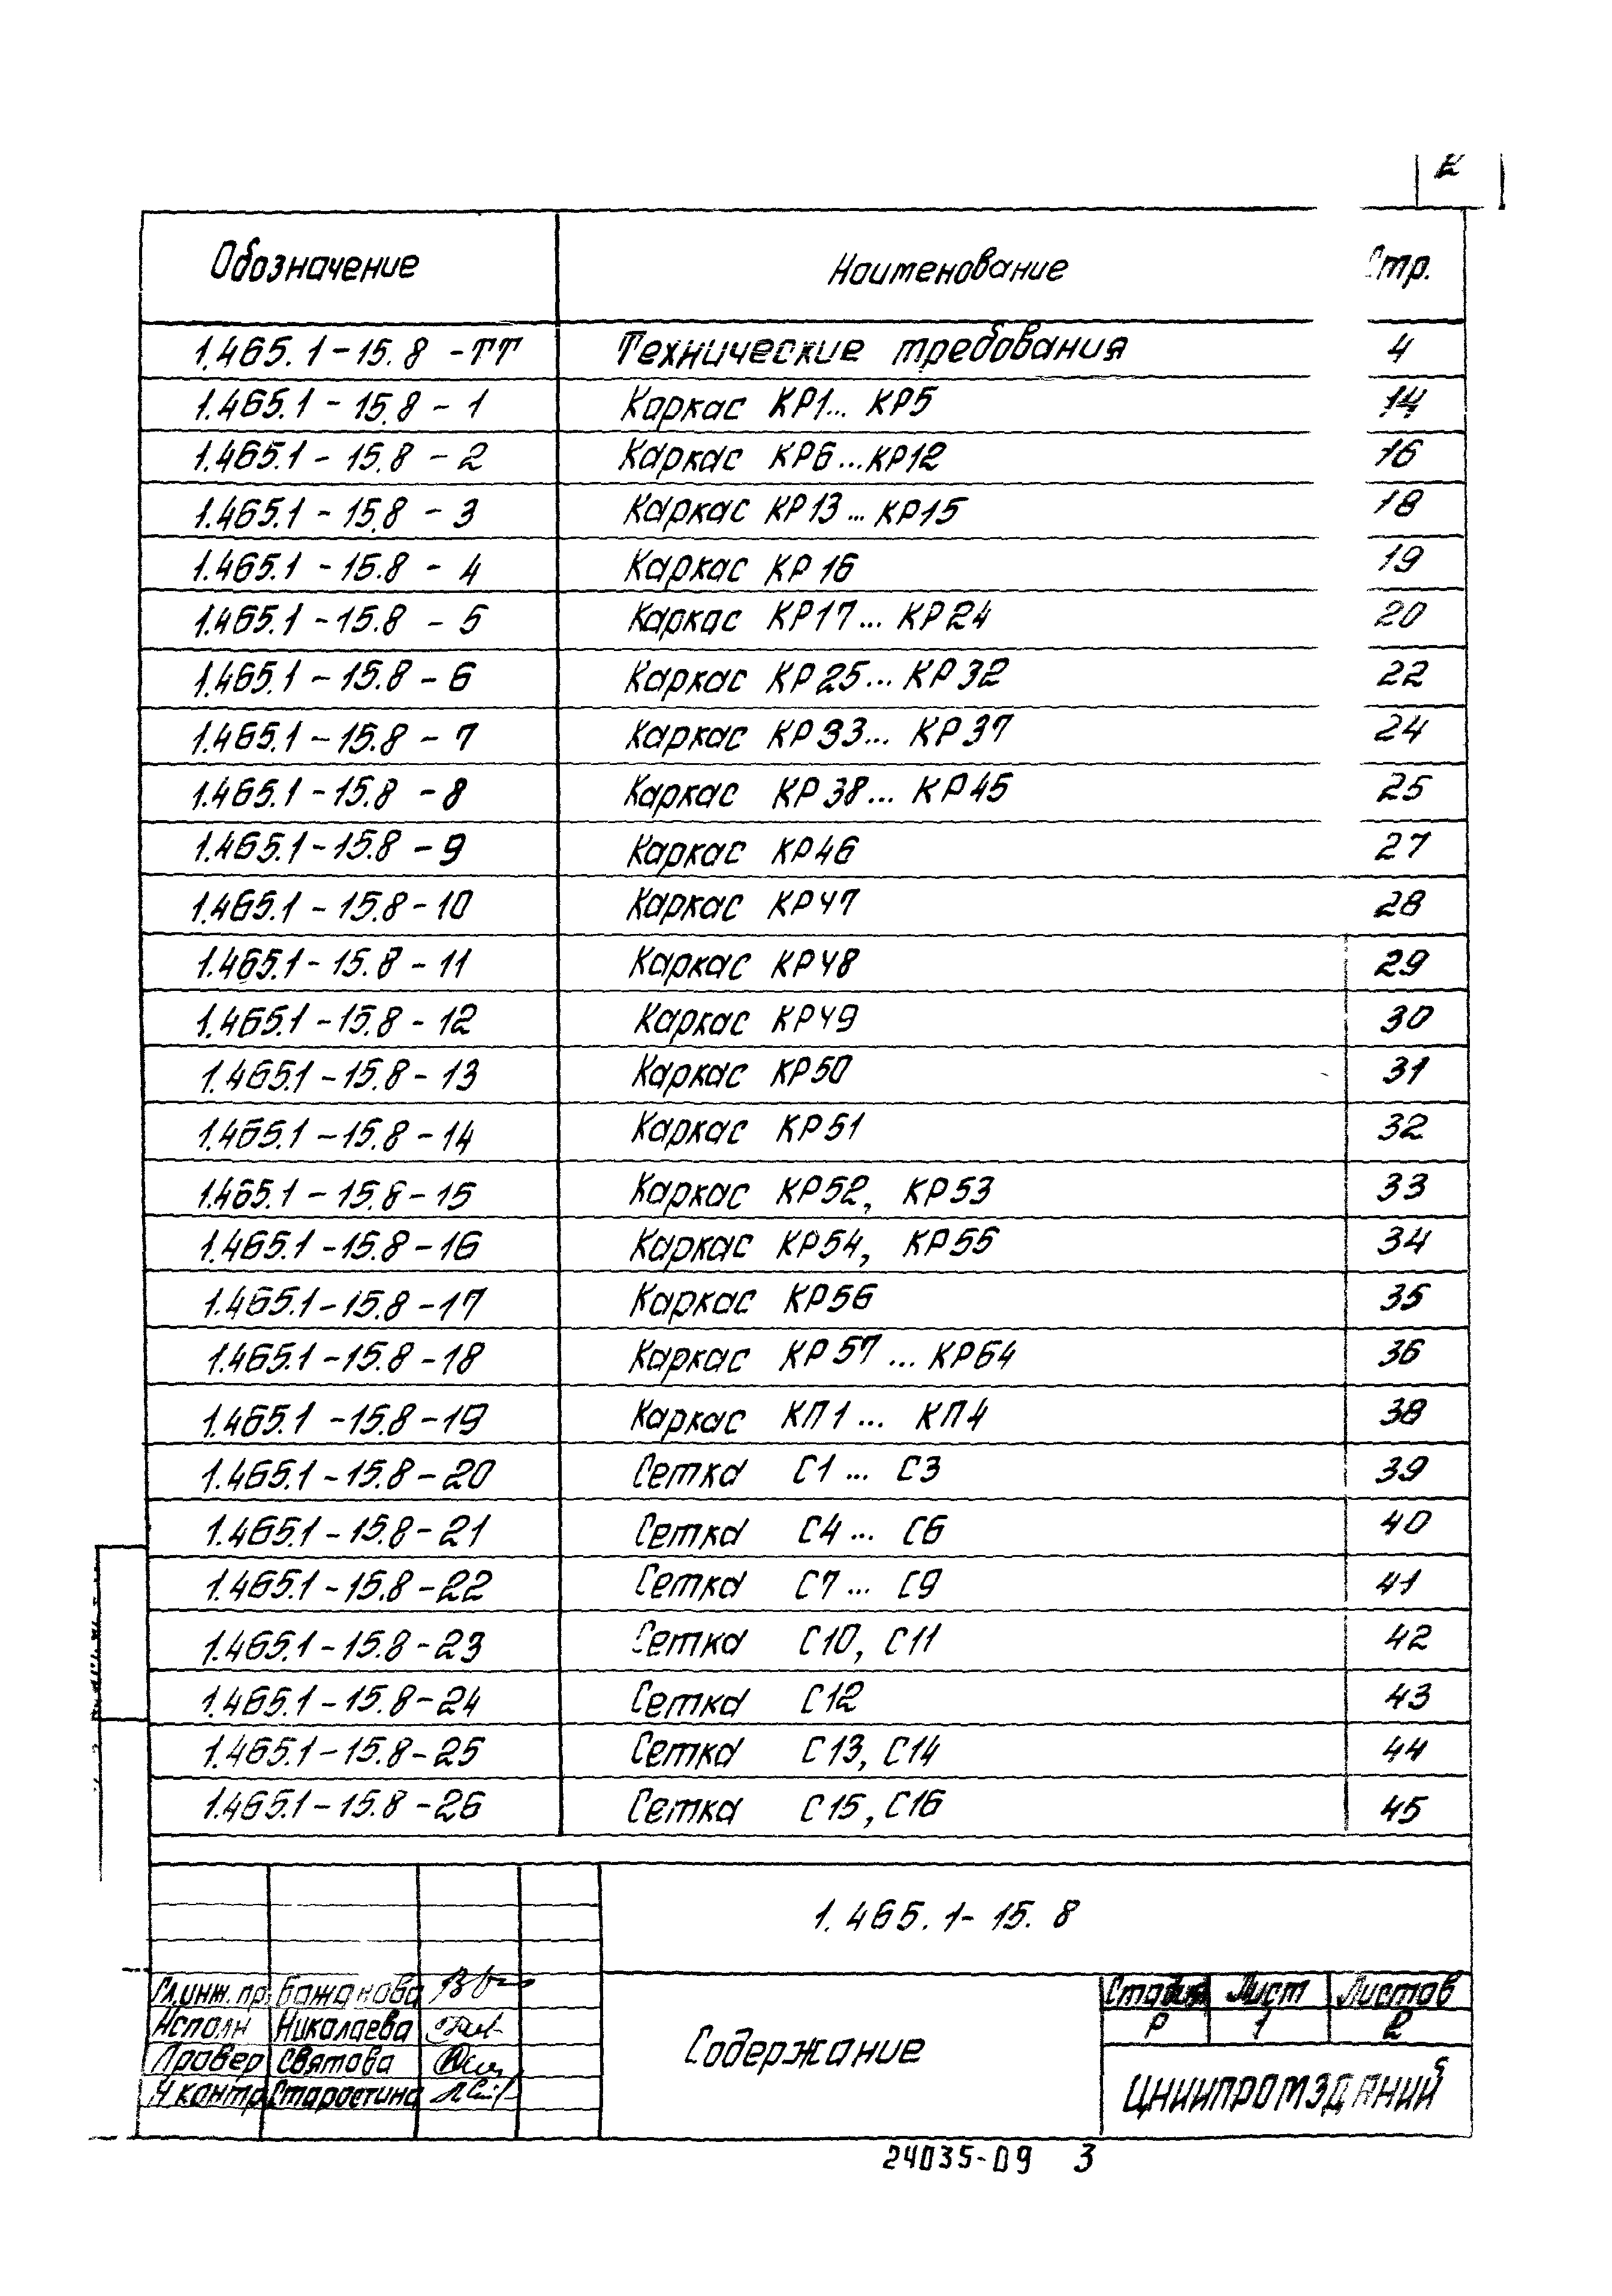 2
Обозначение Наименование Стр.
1.465.1-15.8-ТТ Технические требования 4
1.465.1-15.8-1 Каркас КР1... КР5 14
1.465.1-15.8-2 Каркас КР6...КР12 16
1.465.1-15.8-3 Каркас КР13...КР15 18
1.465.1-15.8-4 Каркас КР16 19
1.465.1-15.8-5 Каркас КР17... КР24 20
1.465.1-15.8-6 Каркас КР25... КР32 22
1.465.1-15.8-7 Каркас КР33... КР37 24
1.465.1-15.8-8 Каркас КР38... КР45 25
1.465.1-15.8-9 Каркас КР46 27
1.465.1-15.8-10 Каркас КР47 28
1.465.1-15.8-11 Каркас КР48 29
1.465.1-15.8-12 Каркас КР49 30
1.465.1-15.8-13 Каркас КР50 31
1.465.1-15.8-14 Каркас КР51 32
1.465.1-15.8-15 Каркас КР52, КР53 33
1.465.1-15.8-16 Каркас КР54, КР55 34
1.465.1-15.8-17 Каркас КР56 35
1.465.1-15.8-18 Каркас КР57... КР64 36
1.465.1-15.8-19 Каркас КП1... КП4 38
1.465.1-15.8-20 Сетка С1... С3 39
1.465.1-15.8-21 Сетка С4... С6 40
1.465.1-15.8-22 Сетка С7... С9 41
1.465.1-15.8-23 Сетка С10, С11 42
1.465.1-15.8-24 Сетка С12 43
1.465.1-15.8-25 Сетка С13, С14 44
1.465.1-15.8-26 Сетка С15, С16 45
1.465.1-15.8
Гл.инж.пр. Бажанова
Исполн Николаева
Провер Святова
Н контр Старостина
Содержание
Стадия Лист Листов
Р 1 2
ЦНИИПРОМЗДАНИЙ
24035-09 3